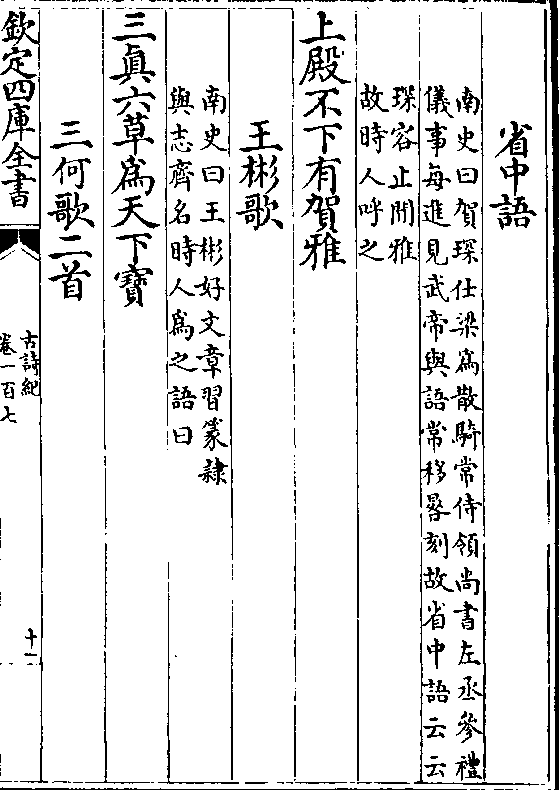 省中語
南史曰賀琛仕梁為散騎常侍領尚書左丞參禮
儀事每進見武帝與語常移晷刻故省中語云云
琛容止閒雅
故時人呼之
上殿不下有賀雅
王彬歌
南史曰王彬好文章習篆隷
與志齊名時人為之語曰
三真六草為天下寶
三何歌二首
欽定四庫全書
古詩紀
卷一百七
十一